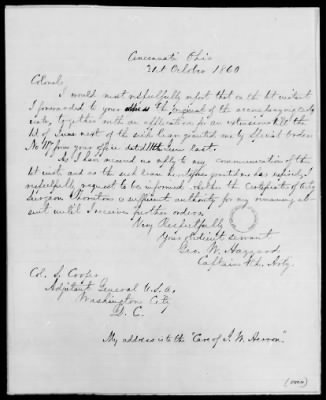 Cincinnati Ohio
21st October 1860
Colonel,
I would most respectfully report that on the 1st instant
I forwarded to your office the original of the accompanying certifi-
cate, together with an application for an extension till the
1st of June next of the sick leave granted me by Special Orders
No from your office dated June last.
As I have received no reply to my communication of the
1st inst. and as the sick leave heretofore granted me has expired, I
respectfully request to be informed whether the Certificate of
Surgeon is sufficient authority for my remaining ab-
sent until I receive further orders.
Very Respectfully
Your obedient servant
Geo. W.
Captain 1st Arty.
Col. S. Cooper
Adjutant General U.S.A.
Washington City
D. C.
My address is to the "Care of J. W. Herron".